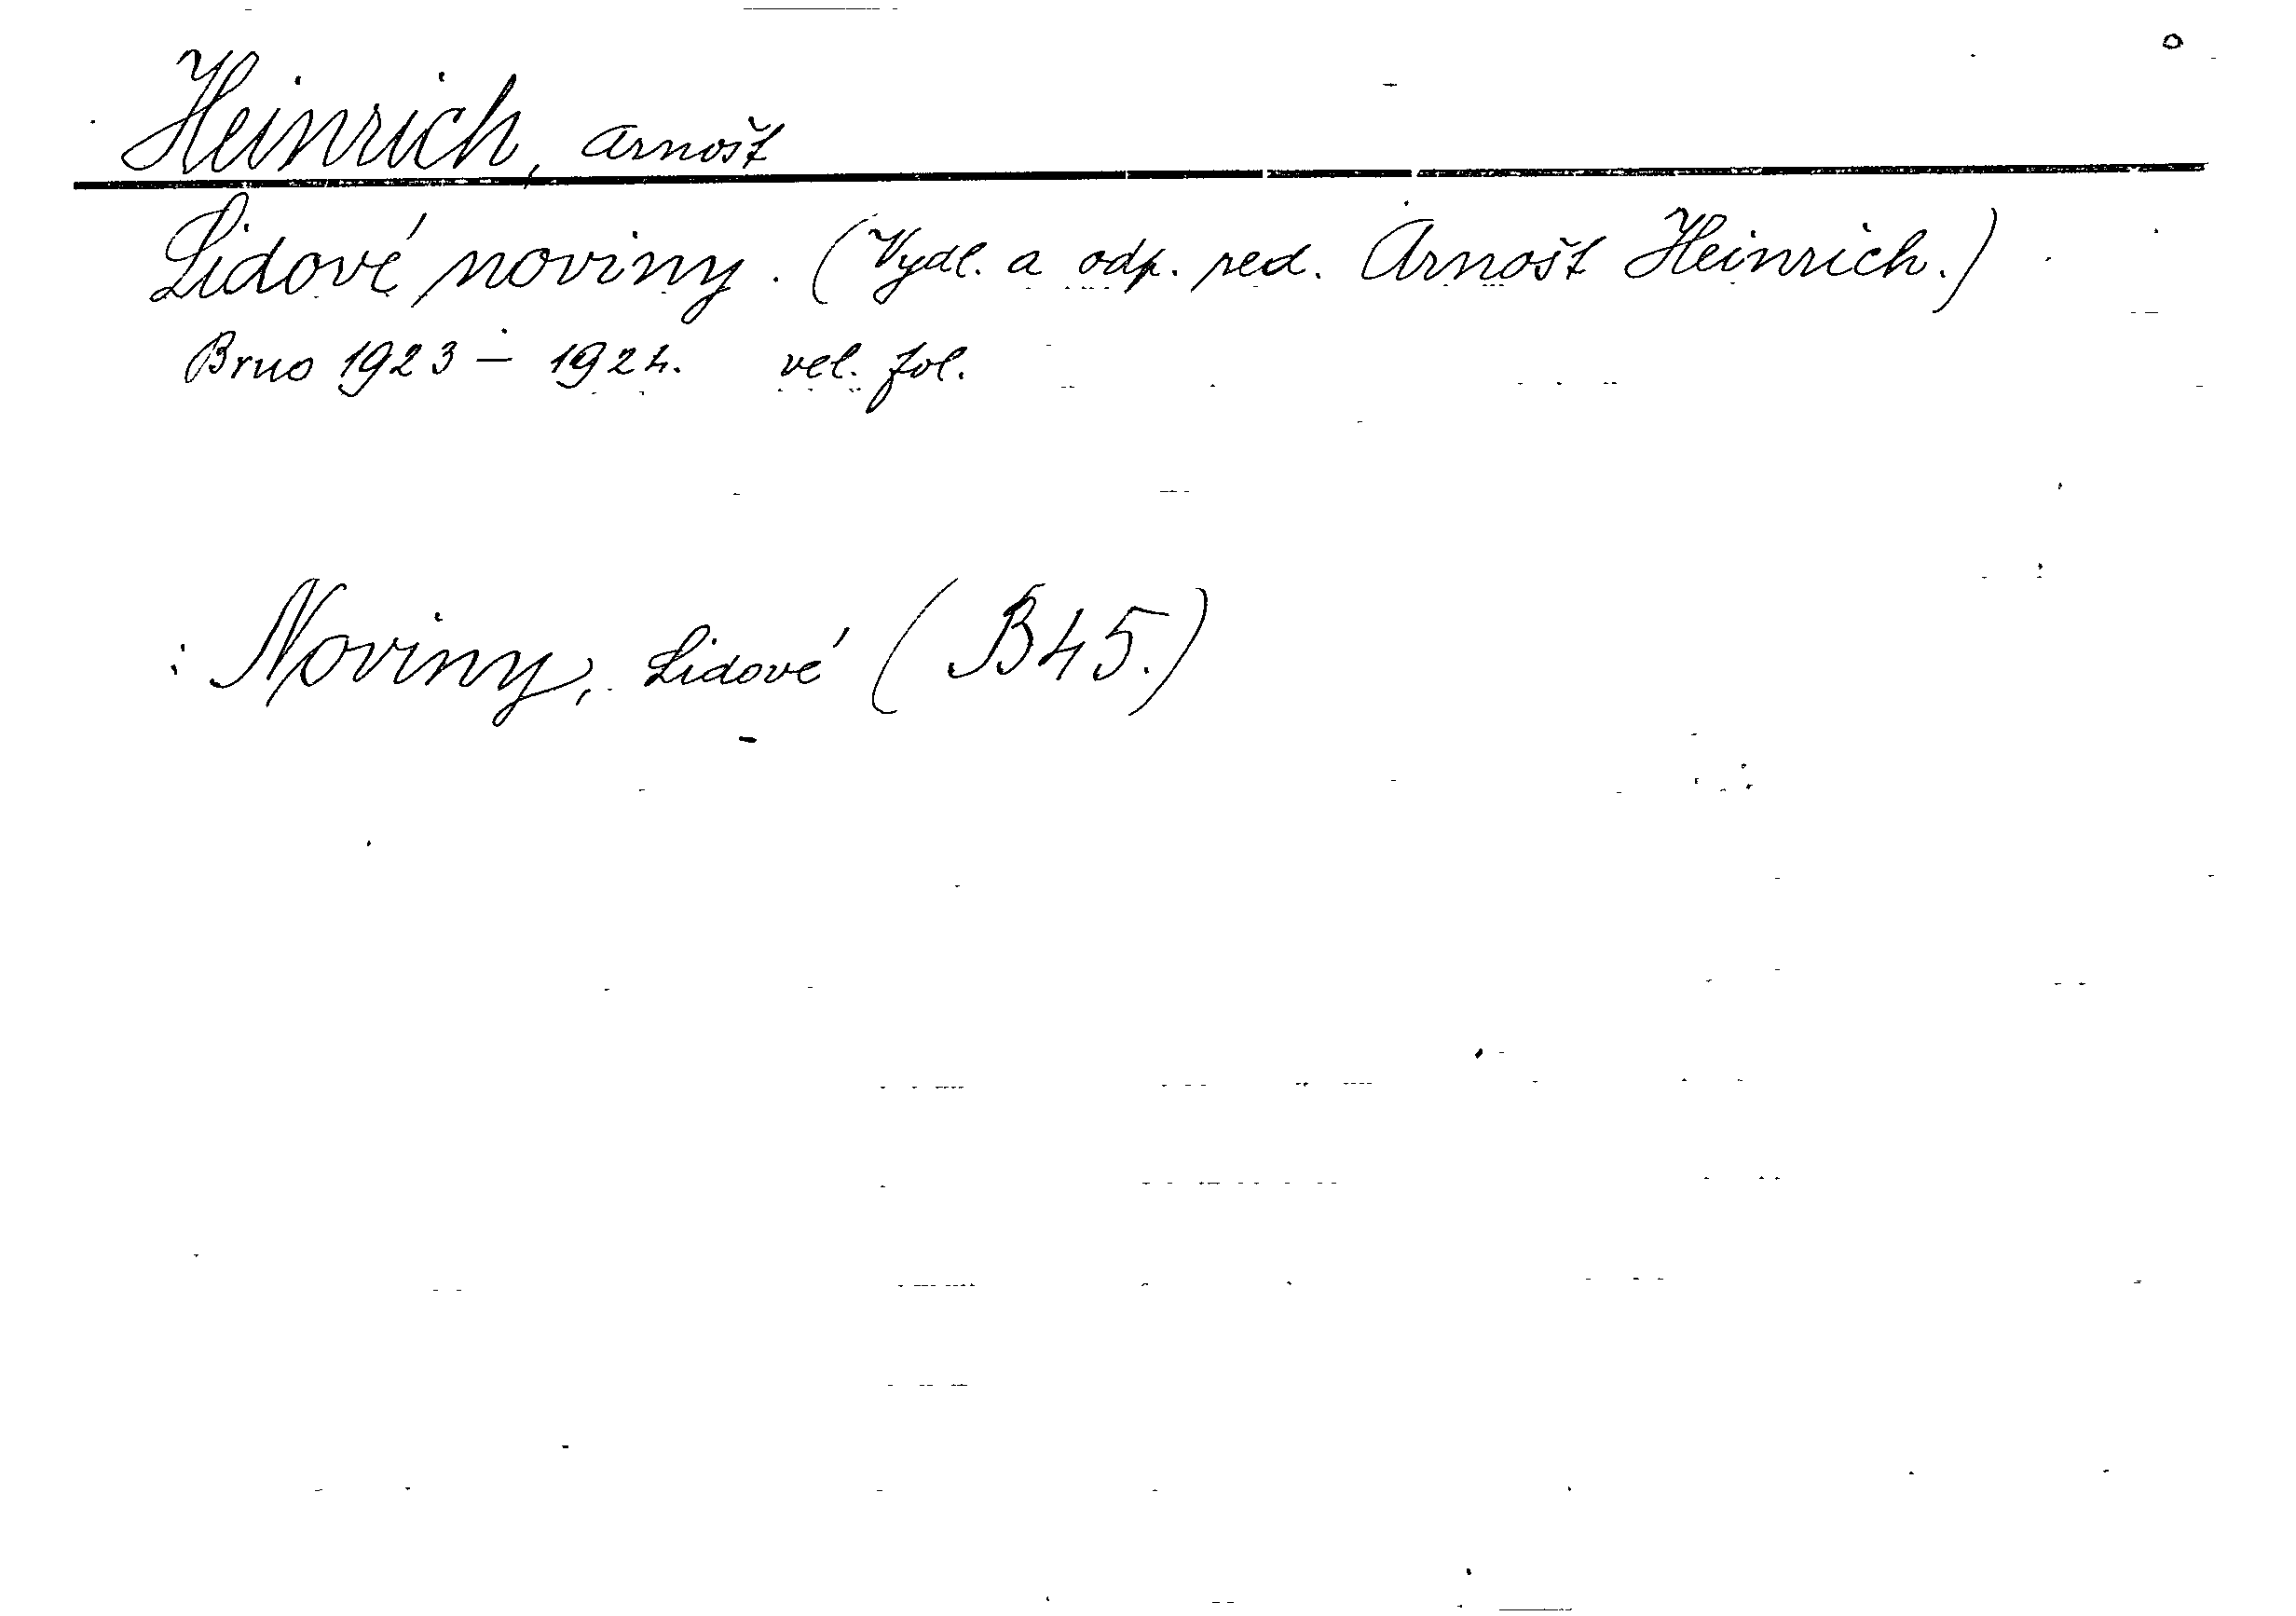 Heinrich, Arnošt
Lidové noviny. (Vydl. a odp. red. Arnošt Heinrich.)
Brno 1923 – 1924. vel. fol.
: Noviny, Lidové (B45.)